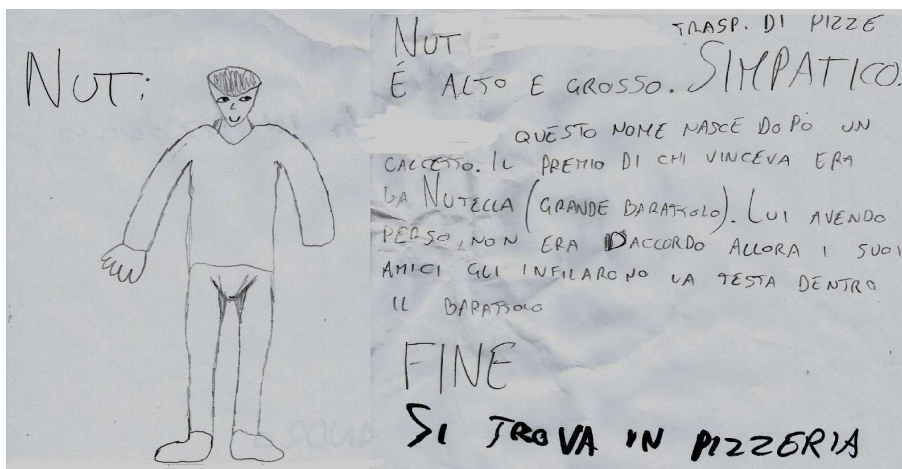 NUT:
TRASP. DI PIZZE
NUT
É ALTO E GROSSO. SIMPATICO.
QUESTO NOME NASCE DOPO UN
CALCETTO. IL PREMIO DI CHI VINCEVA ERA
LA NUTELLA (GRANDE BARATTOLO). LUI AVENDO
PERSO, NON ERA DACCORDO ALLORA I SUOI
AMICI GLI INFILARONO LA TESTA DENTRO
IL BARATTOLO
FINE
SI TROVA IN PIZZERIA